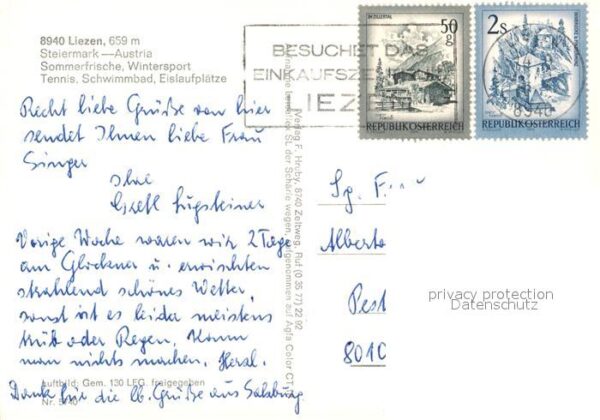 8940 Liezen, 659 m
Steiermark — Austria
Sommerfrische, Wintersport
Tennis, Schwimmbad, Eislaufplätze
BESUCHET DAS
EINKAUFSZE
LIEZE
IM ZILLERTAL
50
g
REPUBLIK ÖSTERREICH
2s
8940
REPUBLIK ÖSTERREICH
Recht liebe Grüße von hier
sendet Ihnen liebe Frau
Singer
Ihre
Gretl Lugsteiner
Vorige Woche waren wir 2 Tage
am Glockner u. erwischten
strahlend schönes Wetter,
sonst ist es leider meistens
trüb oder Regen. Kann
man nichts machen. Herzl.
Dank für die lb. Grüße aus Salzburg
Luftbild: Gem. 130 LFG. freigegeben
Nr.
Verlag F. Hruby, 8740 Zeltweg, Ruf (0 35 77) 22 92
der Schärfe wegen, aufgenommen auf Agfa Color CT
Sg. F
Alberto
Pest
8010
privacy protection
Datenschutz